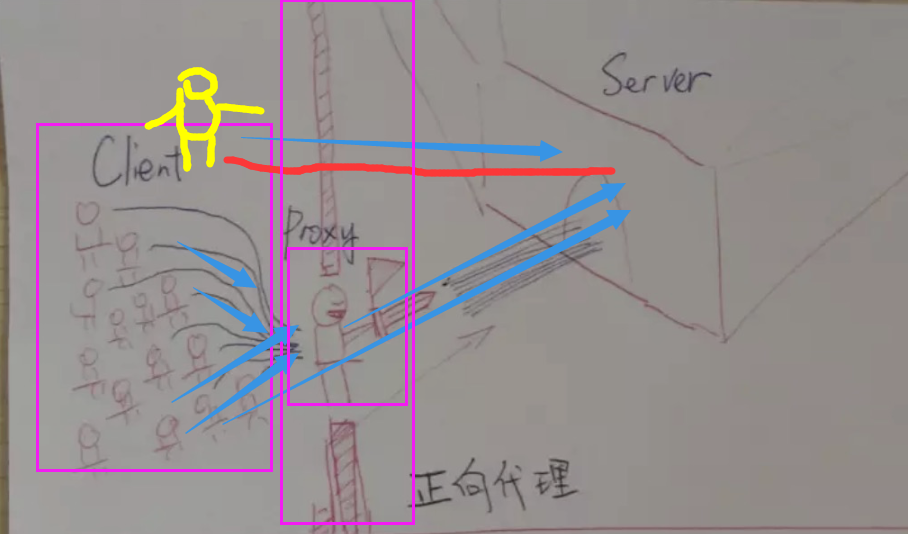 Server
Client
Proxy
正向代理